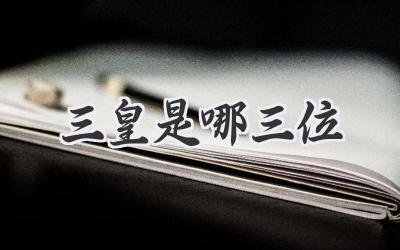 三皇是哪三位